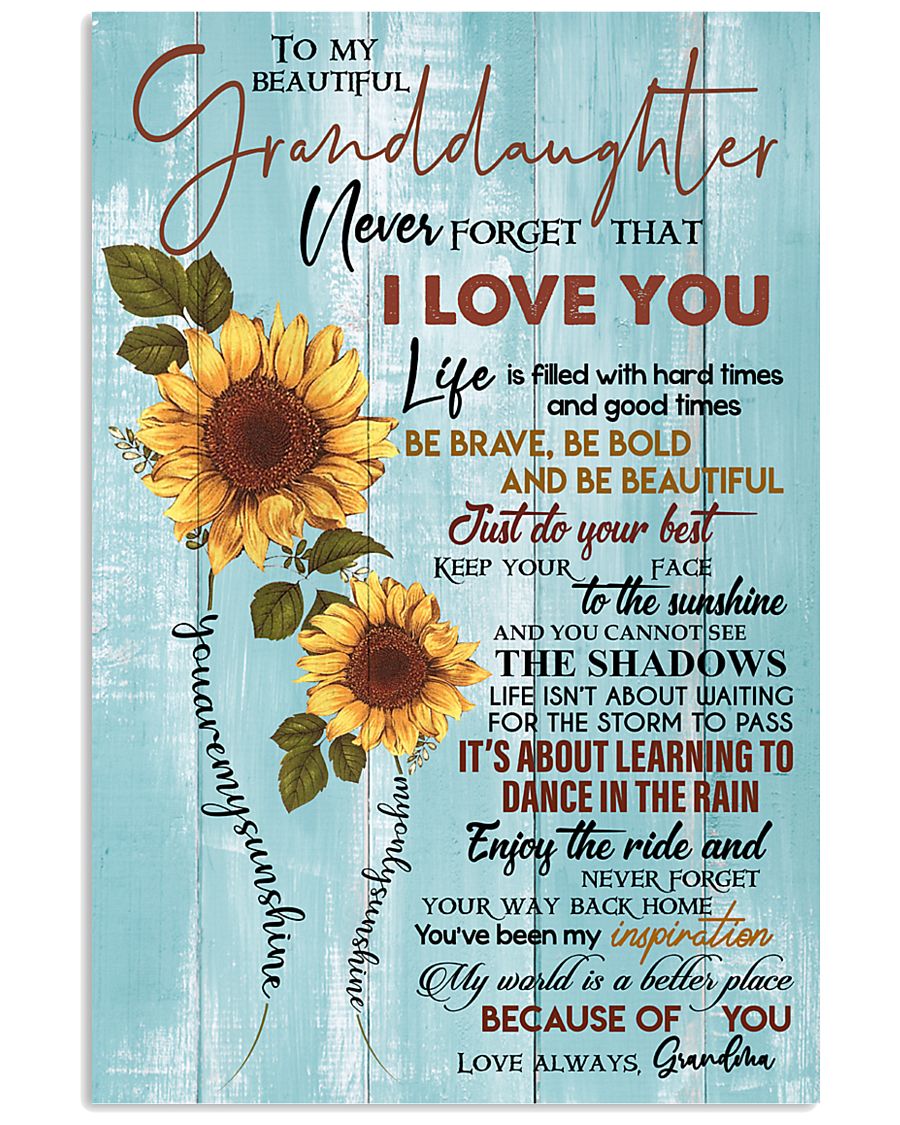 To my
beautiful
Granddaughter
Never forget that
I LOVE YOU
Life is filled with hard times
and good times
BE BRAVE, BE BOLD
AND BE BEAUTIFUL
Just do your best
Keep your face
to the sunshine
AND YOU CANNOT SEE
THE SHADOWS
LIFE ISN'T ABOUT WAITING
FOR THE STORM TO PASS
IT'S ABOUT LEARNING TO
DANCE IN THE RAIN
Enjoy the ride and
never forget
your way back home
You've been my inspiration
My world is a better place
BECAUSE OF YOU
Love always, Grandma
youaremysunshine
myonlysunshine